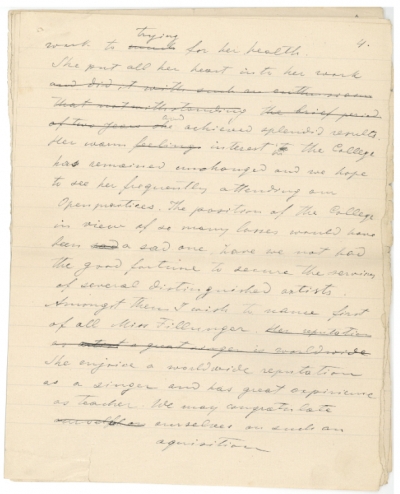 trying 4.
work to much for her health.
She put all her heart into her work
and did it with such an enthusiasm
that notwithstanding the brief period
of two years she and achieved splendid results.
Her warm feeling interest to the College
has remained unchanged and we hope
to see her frequently attending our
Openpractices. The position of the College
in view of so many losses would have
been sad a sad one, have we not had
the good fortune to secure the services
of several distinguished artists.
Amongst them I wish to name first
of all Miss Fillunger. Her reputation
as a great singer is worldwide
She enjoies a worldwide reputation
as a singer and has great experience
as teacher. We may congratulate
ourselves on such an
aquisition